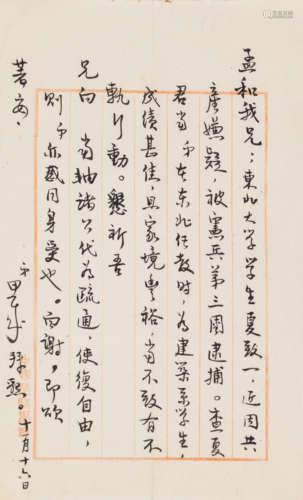 孟和我兄：東北大学学生夏致一，近因共
產嫌疑，被憲兵第三團逮捕。查夏
君當弟在东北任教时，为建築系学生，
成績甚佳，且家境豐裕，當不致有不
軌行動。懇祈吾
兄向當軸諸公代为疏通，使復自由，
則弟亦感同身受也。謝，即頌
著安。
弟思成拜 十一月十六日